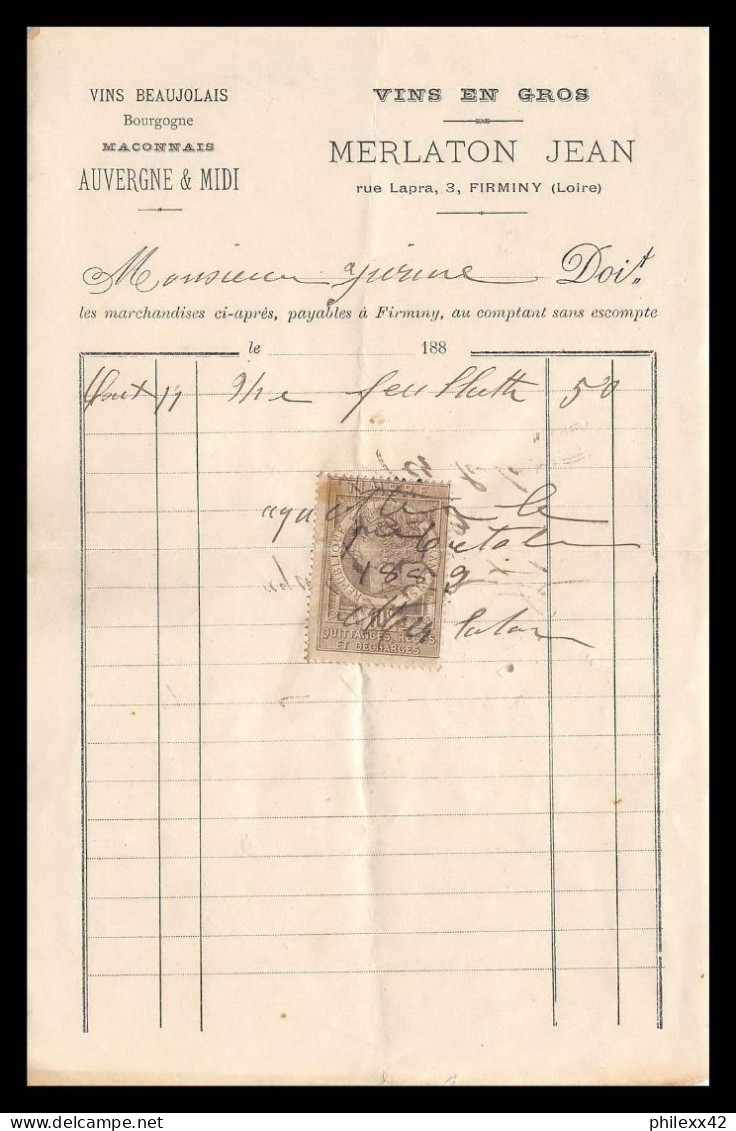 VINS BEAUJOLAIS
Bourgogne
MACONNAIS
AUVERGNE & MIDI
VINS EN GROS
DE
MERLATON JEAN
rue Lapra, 3, FIRMINY (Loire)
Monsieur Doit
les marchandises ci-après, payables à Firminy, au comptant sans escompte
le 188
Aout 11 feuillette 50
TIMBRE
le
octobre
1889
Merlaton
10c
QUITTANCES, REÇUS
ET DÉCHARGES
philexx42